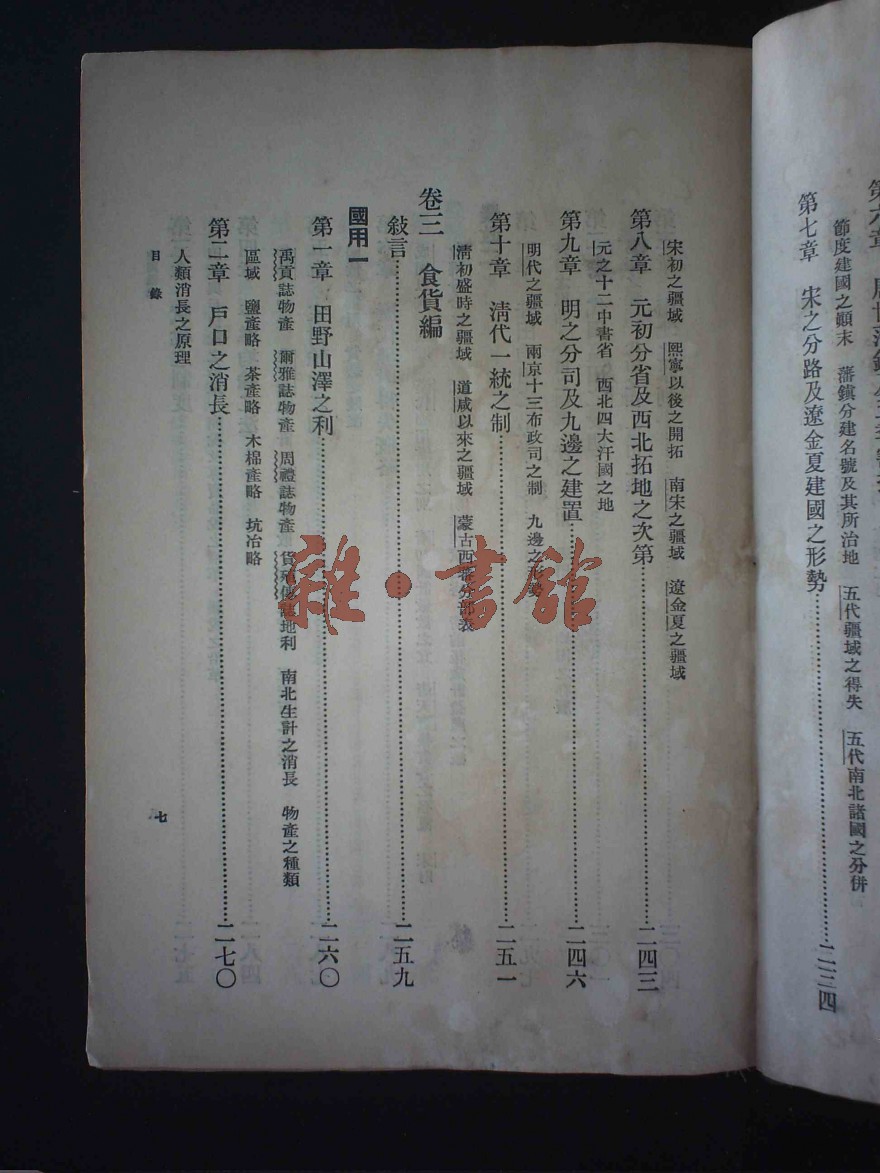 節度建國之顚末　藩鎭分建名號及其所治地　五代疆域之得失　五代南北諸國之分併
第七章　宋之分路及遼金夏建國之形勢……二三四
宋初之疆域　熙寧以後之開拓　南宋之疆域　遼金夏之疆域
第八章　元初分省及西北拓地之次第……二四三
元之十二中書省　西北四大汗國之地
第九章　明之分司及九邊之建置……二四六
明代之疆域　兩京十三布政司之制　九邊之形勢
第十章　淸代一統之制……二五一
淸初盛時之疆域　道咸以來之疆域　蒙古西番分部表
卷三　食貨編
敍言……二五九
國用一
第一章　田野山澤之利……二六〇
禹貢誌物產　爾雅誌物產　周禮誌物產　貨殖傳誌地利　南北生計之消長　物產之種類
區域　鹽產略　茶產略　木棉產略　坑冶略
第二章　戶口之消長……二七〇
人類消長之原理
目錄
七
雜·書館